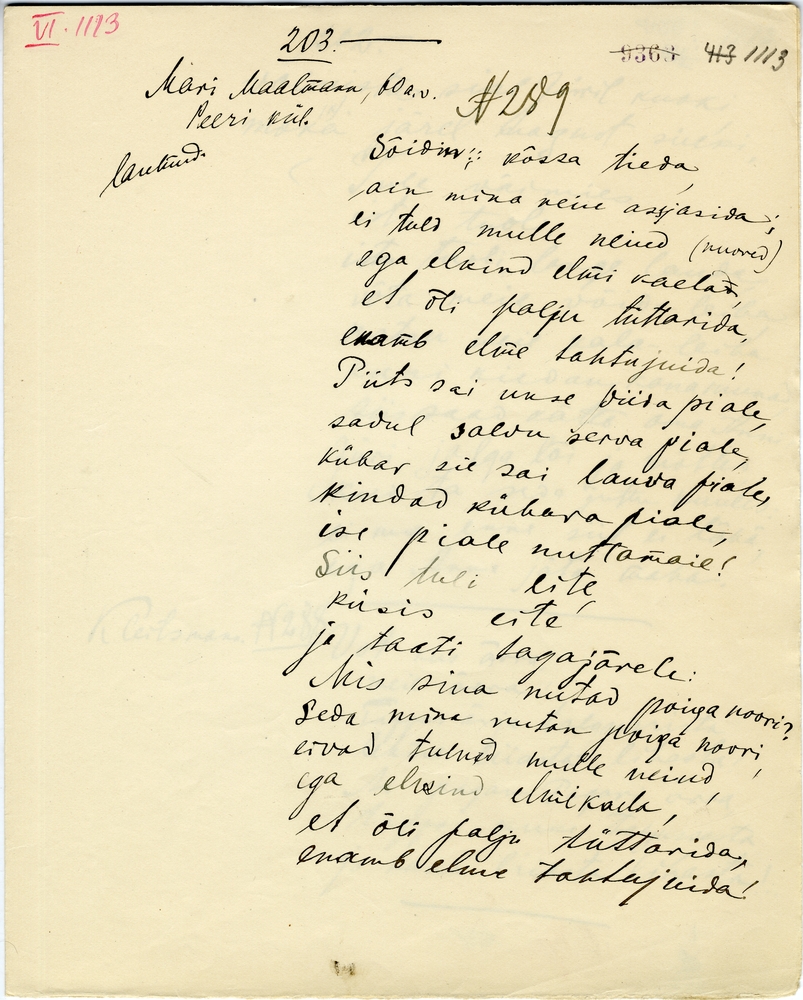 VI. 1113
203.
9363 413 1113
Mari Maatmann, 60 a.v.
Peeri kül.
№ 289
laulund.
Sõidin kõssa tieda,
ain mina neiu assjasida;
ei tuld mulle neiud (nuored)
ega elkind elmi kaelad,
et õli palju tüttarida,
enam̄b elm̄e tahtujuida!
Piits sai ukse piida piale,
sadul saldu serva piale,
kübar sie sai lauva piale,
kindad kübara piale,
ise piale nuttamaie!
Siis tuli eite,
küsis eite
ja taati tagajärele:
Mis sina nutad poiga noori?
Seda mina nutan poiga noori,
eivad tulnud mulle neiud,
ega elkind elmikaela,
et õli palju tüttarida,
enamb elme tahtujuida!